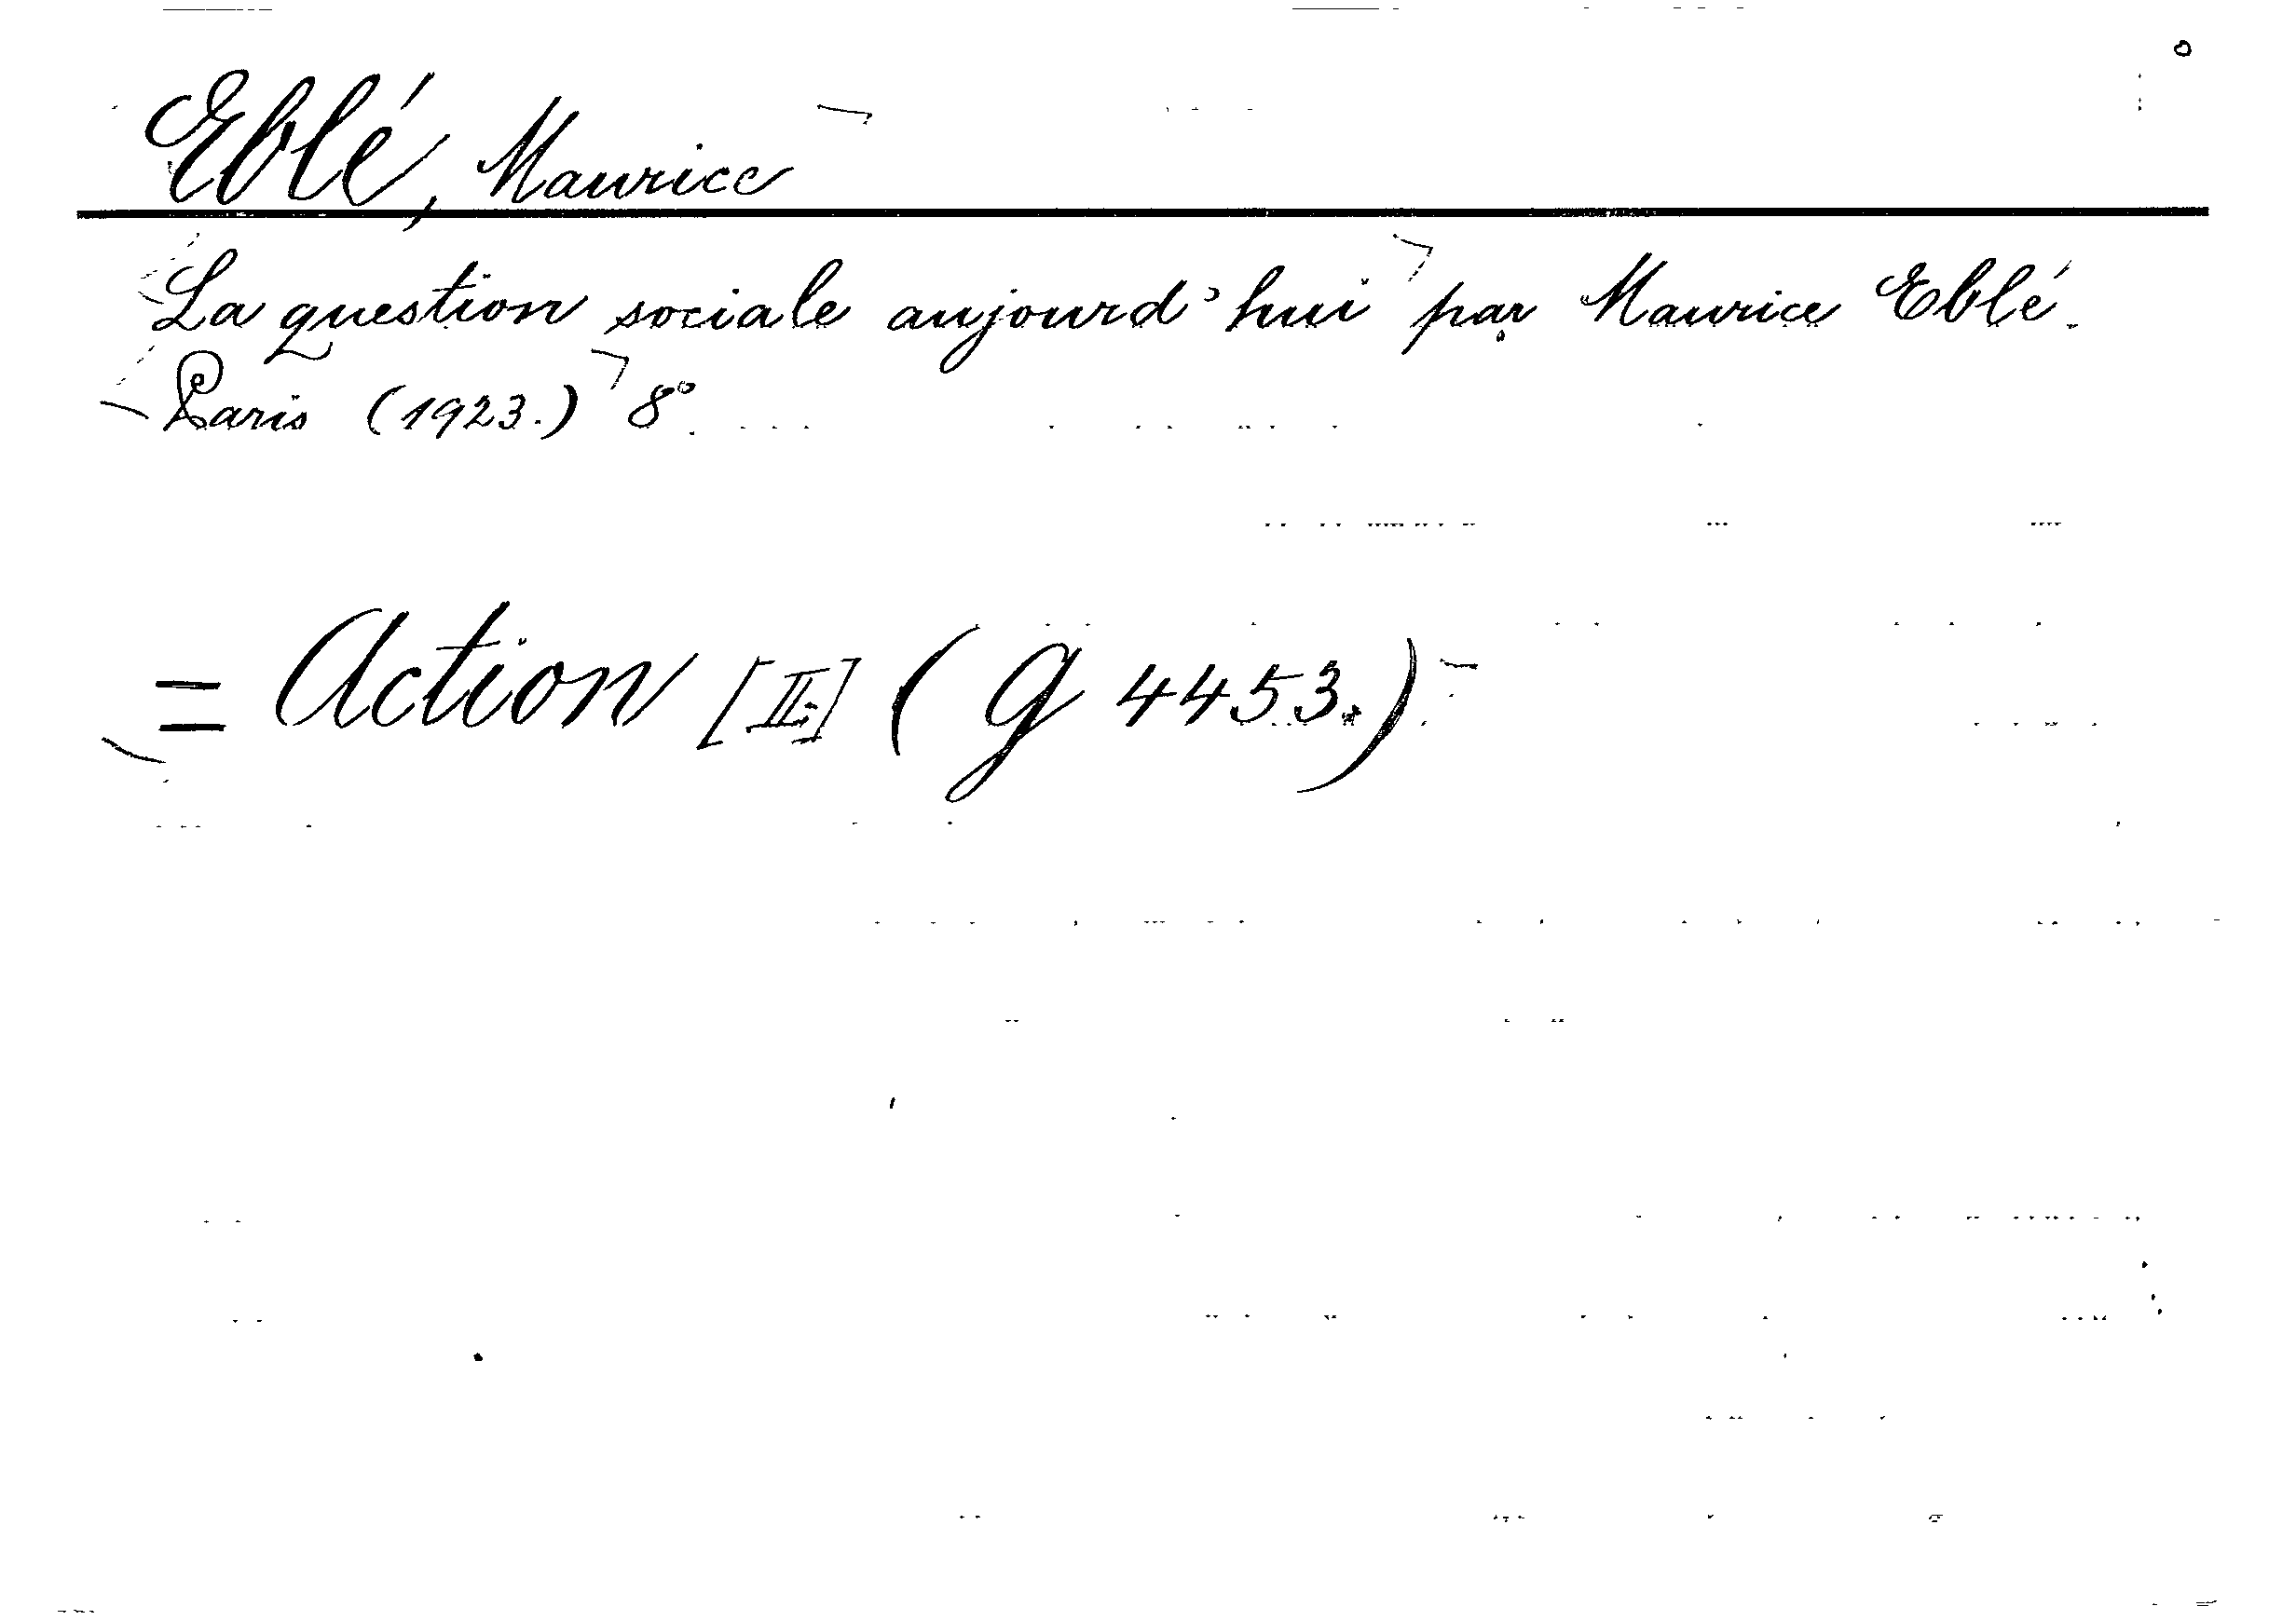 Eblé, Maurice
La question sociale aujourd'hui par Maurice Eblé.
Paris (1923.) 8°
= Action [II:] (g 4453.)